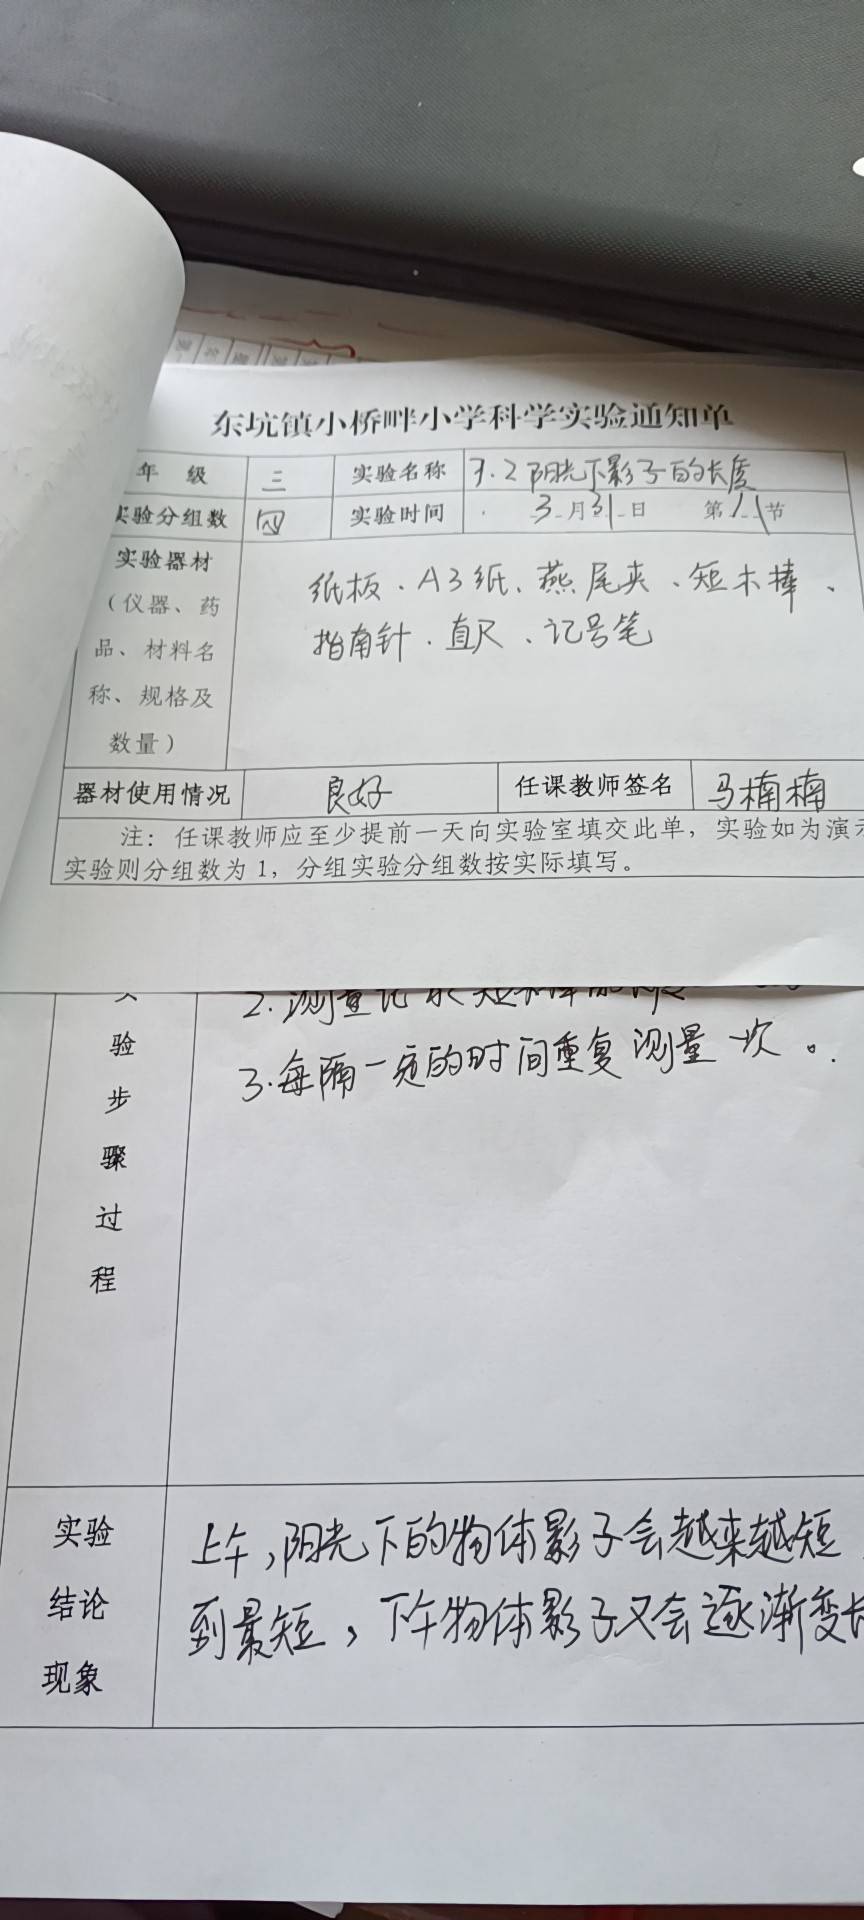 东坑镇小桥畔小学科学实验通知单
年 级 三 实验名称 3.2阳光下影子的长度
实验分组数 四 实验时间 3月31日 第八节
实验器材
(仪器、药
品、材料名
称、规格及
数量)
纸板、A3纸、燕尾夹、短木棒、
指南针、直尺、记号笔
器材使用情况 良好 任课教师签名 马楠楠
注:任课教师应至少提前一天向实验室填交此单,实验如为演示
实验则分组数为1,分组实验分组数按实际填写。
验
步
骤
过
程
2.测量记录短木棒
3.每隔一定的时间重复测量一次。
实验
结论
现象
上午,阳光下的物体影子会越来越短
到最短,下午物体影子又会逐渐变长